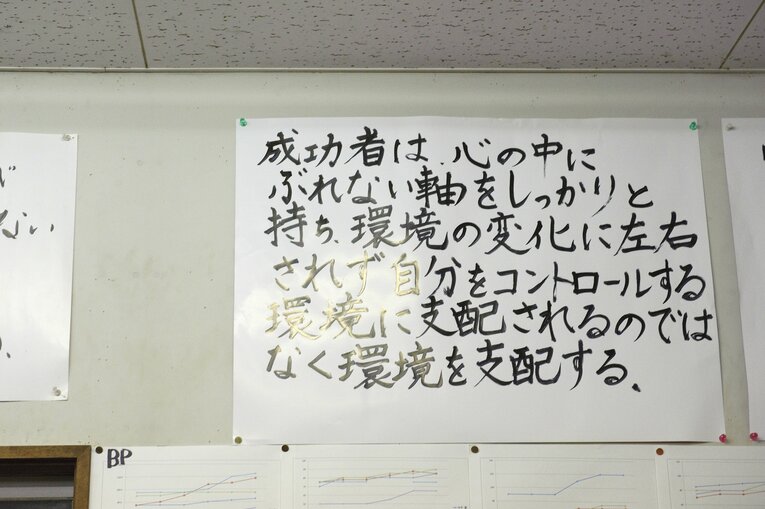 成功者は、心の中に
ぶれない軸をしっかりと
持ち、環境の変化に左右
されず自分をコントロールする
環境に支配されるのでは
なく環境を支配する、
ない
BP